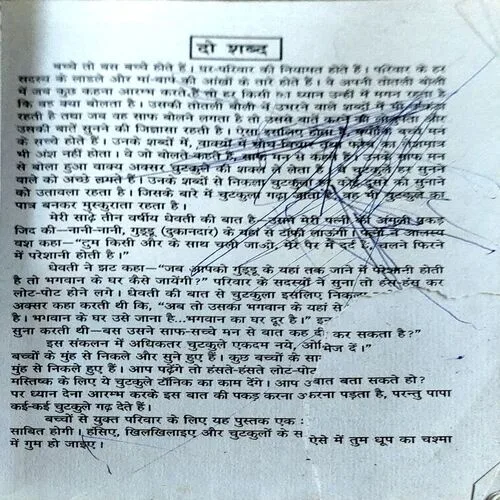 दो शब्द
बच्चे तो बस बच्चे होते हैं। घर-परिवार की नियामत होते हैं। परिवार के हर
सदस्य के लाडले और मां-बाप की आंखों के तारे होते हैं। वे अपनी तोतली बोली
में जब कुछ कहना आरम्भ करते हैं तो हर किसी का ध्यान उन्हीं में मगन रहता है
कि वह क्या बोलता है। उसकी तोतली बोली में उभरने वाले शब्दों में भी
रहती है तथा जब वह साफ बोलने लगता है तो उससे बातें करने की और
उसकी बातें सुनने की जिज्ञासा रहती है। ऐसा इसलिए होता है क्योंकि बच्चे मन
के सच्चे होते हैं। उनके शब्दों में, वाक्यों में सोच विचार तथा का लेशमात्र
भी अंश नहीं होता। वे जो बोलते-कहते हैं, साफ मन से कहते हैं। उनके साफ मन
से बोला हुआ वाक्य अक्सर चुटकुले की शक्ल ले लेता है। ये चुटकुले हर सुनने
वाले को अच्छे लगते हैं। उनके शब्दों से निकला चुटकुला हर कोई दूसरे को सुनाने
को उतावला रहता है। जिसके बारे में चुटकुला गढ़ा जाता है, वह भी चुटकुले का
पात्र बनकर मुस्कुराता रहता है।
मेरी साढ़े तीन वर्षीय धेवती की बात है—उसने मेरी पत्नी की अंगुली पकड़
जिद की—नानी-नानी, गुड्डू (दुकानदार) के यहां से टॉफी लाऊंगी। पत्नी ने आलस्य
वश कहा—"तुम किसी और के साथ चली जाओ, मेरे पैर में दर्द है, चलने फिरने
में परेशानी होती है।"
धेवती ने झट कहा—"जब आपको गुड्डू के यहां तक जाने में परेशानी होती
है तो भगवान के घर कैसे जायेंगी?" परिवार के सदस्यों ने सुना तो हंस-हंस कर
लोट-पोट होने लगे। धेवती की बात से चुटकुला इसलिए निकल
अक्सर कहा करती थी कि, "अब तो उसका भगवान के यहां से
है। भगवान के घर उसे जाना है...भगवान का घर दूर है।" इन
सुना करती थी—बस उसने साफ-सच्चे मन से बात कह दी कर सकता है?"
इस संकलन में अधिकतर चुटकुले एकदम नये, ओ भेज दें।"
बच्चों के मुंह से निकले और सुने हुए हैं। कुछ बच्चों के सा
मुंह से निकले हुए हैं। आप पढ़ेंगे तो हंसते-हंसते लोट-पोट
मस्तिष्क के लिए ये चुटकुले टॉनिक का काम देंगे। आप उ बात बता सकते हो?
पर ध्यान देना आरम्भ करके इस बात की पकड़ करना उ करना पड़ता है, परन्तु पापा
कई-कई चुटकुले गढ़ देते हैं।
बच्चों से युक्त परिवार के लिए यह पुस्तक एक
साबित होगी। हंसिए, खिलखिलाइए और चुटकुलों के स ऐसे में तुम धूप का चश्मा
में गुम हो जाइए।